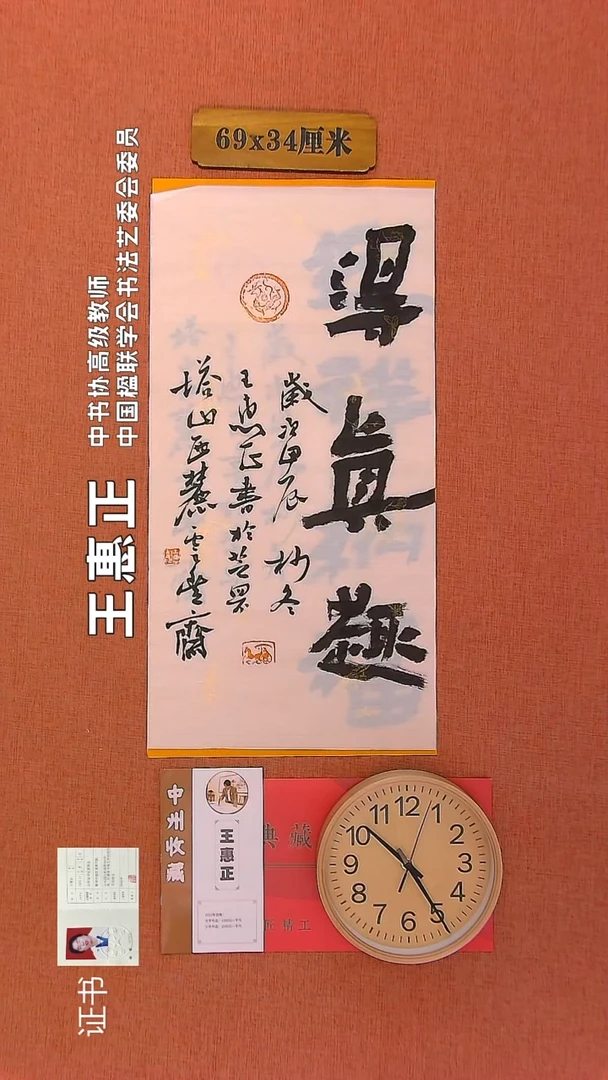 69x34厘米
中书协高级教师
中国楹联学会书法艺委会委员
王惠正
得真趣
歲次甲辰杪冬
王惠正書於芒果
塔山西麓雲堂齋
王惠正
典藏
匠精工
12
1
2
3
4
5
6
7
8
9
10
11
证书